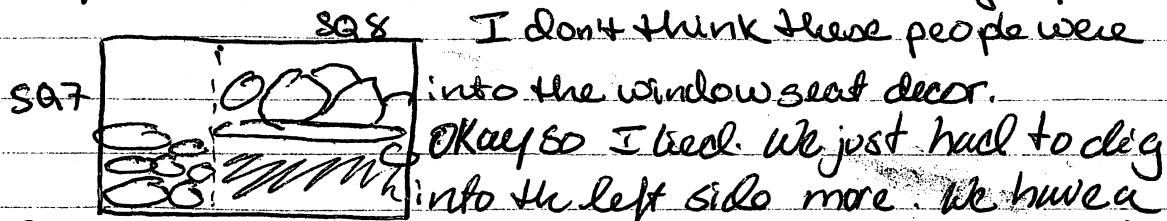 SQ8 I don't think these people were
SQ7 into the window seat decor.
Okay so I lied. We just had to dig
into the left side more. We have a